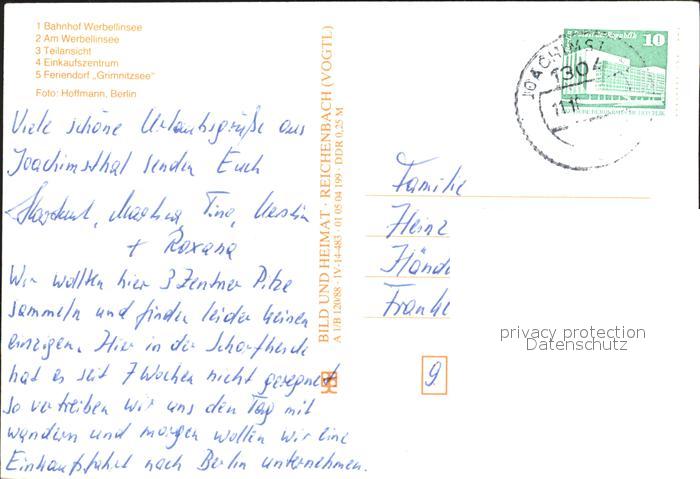 1 Bahnhof Werbellinsee
2 Am Werbellinsee
3 Teilansicht
4 Einkaufszentrum
5 Feriendorf „Grimnitzsee"
Foto: Hoffmann, Berlin
Viele schöne Urlaubsgrüße aus
Joachimsthal senden Euch
Martina, Tino, Kerstin
+ Roxana
Wir wollten hier 3 Zentner Pilze
sammeln und finden leider keinen
einzigen. Hier in der Schorfheide
hat es seit 7 Wochen nicht geregnet
so vertreiben wir uns den Tag mit
wandern und morgen wollen wir eine
Einkaufsfahrt nach Berlin unternehmen.
BILD UND HEIMAT · REICHENBACH (VOGTL)
A 1/B 120/88 · IV-14-483 · 01 05 04 199 · DDR 0,25 M
10
JOACHIMST
1304
11.11
Familie
Heinz
Franke
privacy protection
Datenschutz
9